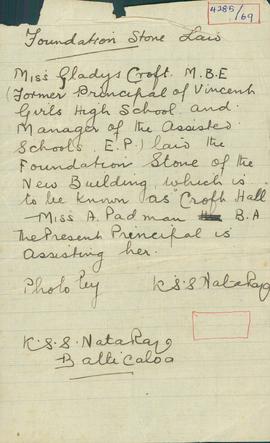 4285/69
Foundation Stone Laid
Miss Gladys Croft. M.B.E
(Former Principal of Vincent
Girls High School and
Manager of the Assisted
Schools. E.P.) laid the
Foundation Stone of the
New Building, which is
to be known as "Croft Hall
Miss A. Padman B.A
The Present Principal is
assisting her.
Photo by K.S.S Nataraja
K.S.S Nataraja
Batticaloa